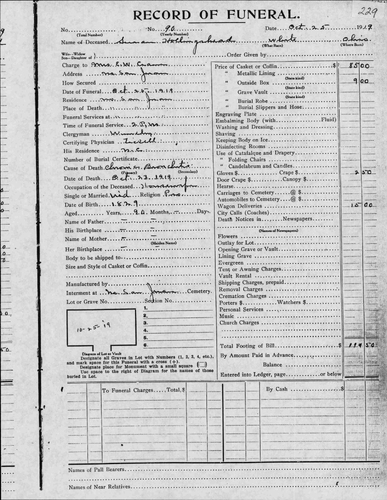 229
RECORD OF FUNERAL.
No. No. 90 Date Oct. 25 1919
(Total Number) (Yearly Number)
Name of Deceased Susan Hollingshead White Ohio
(What Race) (Where Born)
Order Given by
Charge to Mrs. C.W.
Address Mc San Juan
How Secured
Date of Funeral Oct. 25 1919
Residence Mc San Juan
Place of Death
Funeral Services at
Time of Funeral Service 2 P.M.
Clergyman
Certifying Physician
His Residence
Number of Burial Certificate
Cause of Death Chronic Bronchitis
(Primary) (Secondary)
Date of Death Oct. 23. 1919.
Occupation of the Deceased Housewife
Single or Married Wid Religion Pros.
Date of Birth 1829
Aged Years 90 Months Days
Name of Father
His Birthplace
Name of Mother
(Maiden Name)
Her Birthplace
Body to be shipped to
Size and Style of Casket or Coffin
Manufactured by
Interment at Mc San Juan Cemetery.
Lot or Grave No. Section No.
10-25-19
1.
2.
3.
4.
5.
6.
Diagram of Lot or Vault
Designate all Graves in Lot with Numbers (1, 2, 3, 4, etc.), and mark space for this Funeral with a cross (+).
Designate place for Monument with a small square
Use space to the right of Diagram for names of those buried in Lot.
Price of Casket or Coffin 85 00
" Metallic Lining
(State kind)
" Outside Box 9 00
(State kind)
" Grave Vault
(State kind)
" Burial Robe
(State kind)
" Burial Slippers and Hose
Engraving Plate
Embalming Body (with
Washing and Dressing
Shaving
Keeping Body on Ice
Disinfecting Rooms
Use of Catafalque and Drapery
" Folding Chairs
" Candelabrum and Candles
Gloves $ Crape $ 2 50
Door Crape Canopy $
Hearse
Carriages to Cemetery @ $
Automobiles to Cemetery @ $
Wagon Deliveries 15 00
City Calls (Coaches)
Death Notices in Newspapers
(Names of Newspapers)
Flowers
Outlay for Lot
Opening Grave or Vault
Lining Grave
Evergreen
Tent or Awning Charges
Vault Rental
Shipping Charges, prepaid
Removal Charges
Cremation Charges
Porters $ Watchers $
Personal Services
Music
Church Charges
Total Footing of Bill
By Amount Paid in Advance
Balance
Entered into Ledger, page or below
To Funeral Charges Total $ By Cash $
Names of Pall Bearers
Names of Near Relatives